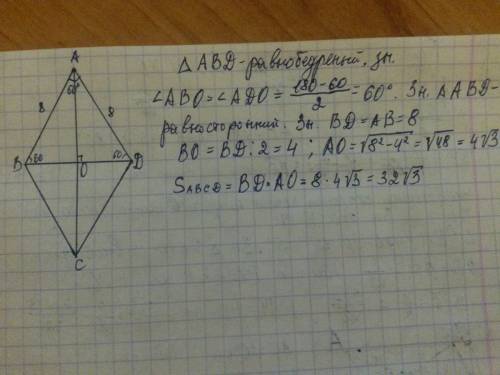 A
60°
8
8
B
60
60
D
O
C
△ABD-равнобедренный, зн.
∠ABO=∠ADO= 180-60/2 = 60°. Зн. △ABD-
равносторонний. Зн. BD=AB=8
BO=BD:2=4; AO=√8²-4²=√48=4√3
SABCD=BD·AO=8·4√3=32√3